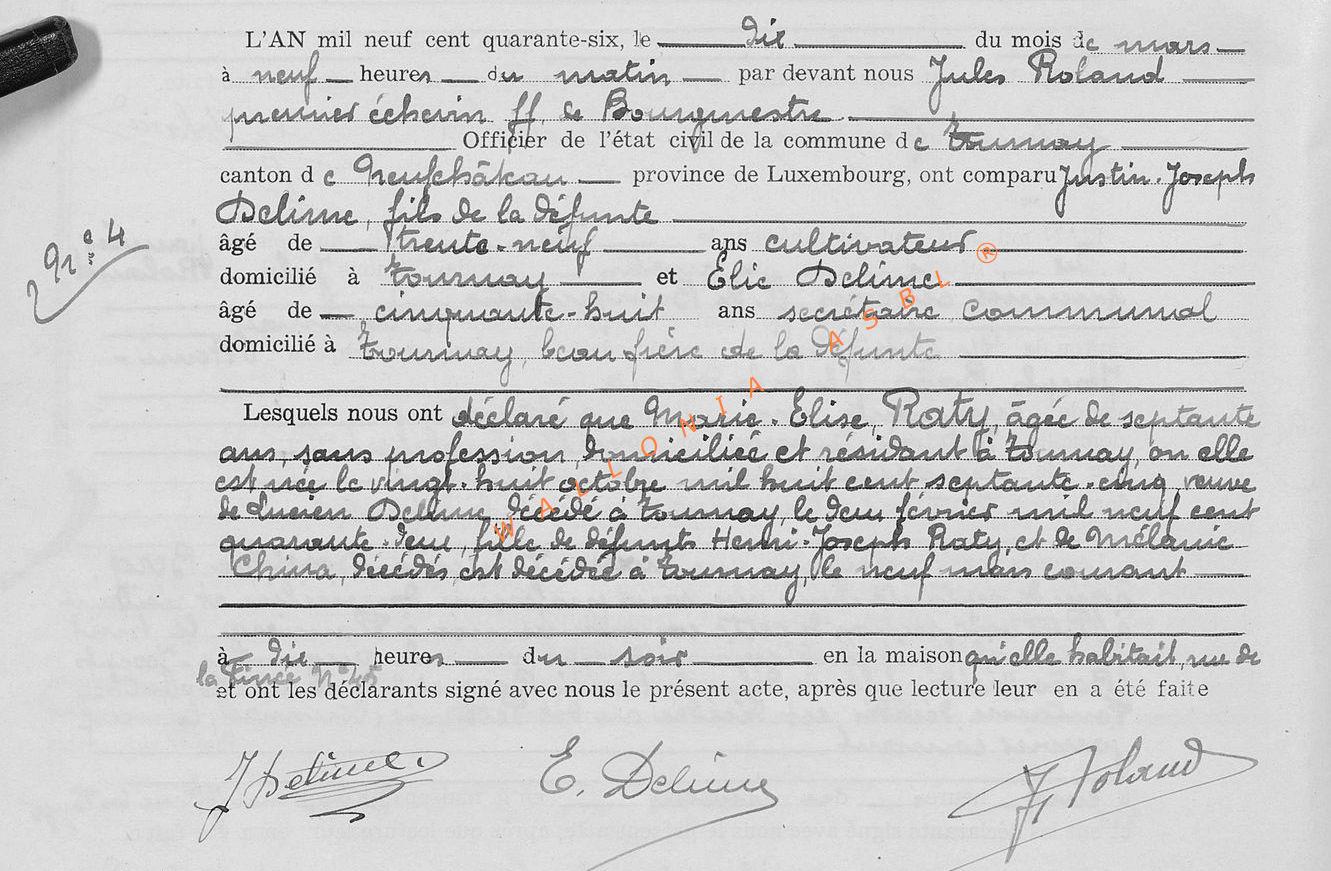 L'AN mil neuf cent quarante-six, le dix du mois de mars
à neuf heures du matin par devant nous Jules Roland
premier échevin ff. de Bourgmestre
Officier de l'état civil de la commune de Tournay
canton de Neufchâteau province de Luxembourg, ont comparu Justin-Joseph
Delime, fils de la défunte
âgé de trente-neuf ans cultivateur
domicilié à Tournay et Élie Delime
âgé de cinquante-huit ans secrétaire communal
domicilié à Tournay, beau frère de la défunte
Lesquels nous ont déclaré que Marie-Elise Raty, âgée de septante
ans, sans profession, domiciliée et résidant à Tournay, où elle
est née le vingt-huit octobre mil huit cent septante-cinq, veuve
de Lucien Delime, décédé à Tournay, le deux février mil neuf cent
quarante-deux, fille de défunts Henri-Joseph Raty, et de Mélanie
China, décédés, est décédée à Tournay, le neuf mars courant
à dix heures du soir en la maison qu'elle habitait, rue de
la N° 45
et ont les déclarants signé avec nous le présent acte, après que lecture leur en a été faite
N° 4
J Delime E. Delime J. Roland
WALLONIA ASBL ®